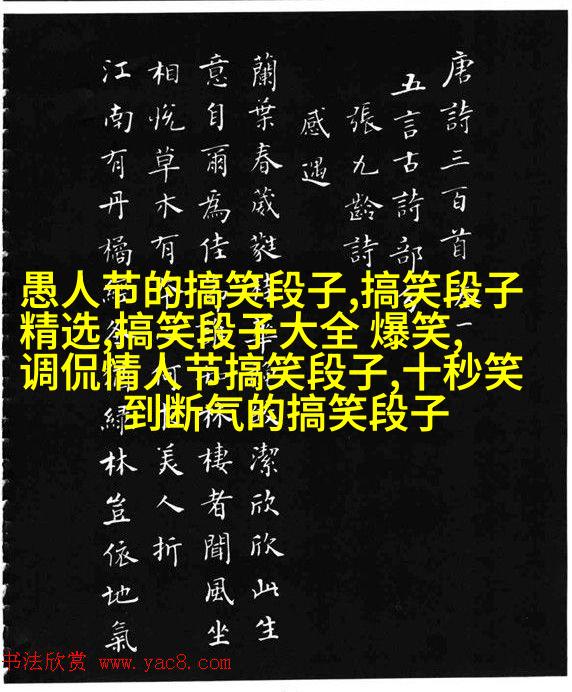 唐詩三百首一
五言古詩部
張九齡詩
感遇
蘭葉春葳蕤華潔欣欣此生
意自爾為佳林棲者聞風坐
相悅草木有何美人折
江南有丹橘經冬猶綠林豈依地氣
愚人节的搞笑段子,搞笑段子
精选,搞笑段子大全 爆笑,
调侃情人节搞笑段子,十秒笑
到断气的搞笑段子
书法欣赏 www.yac8.com